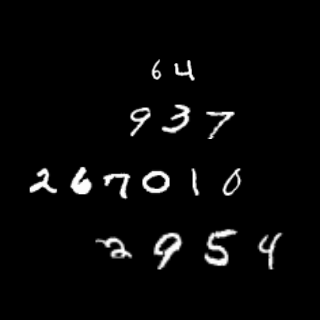 64
937
267010
2954